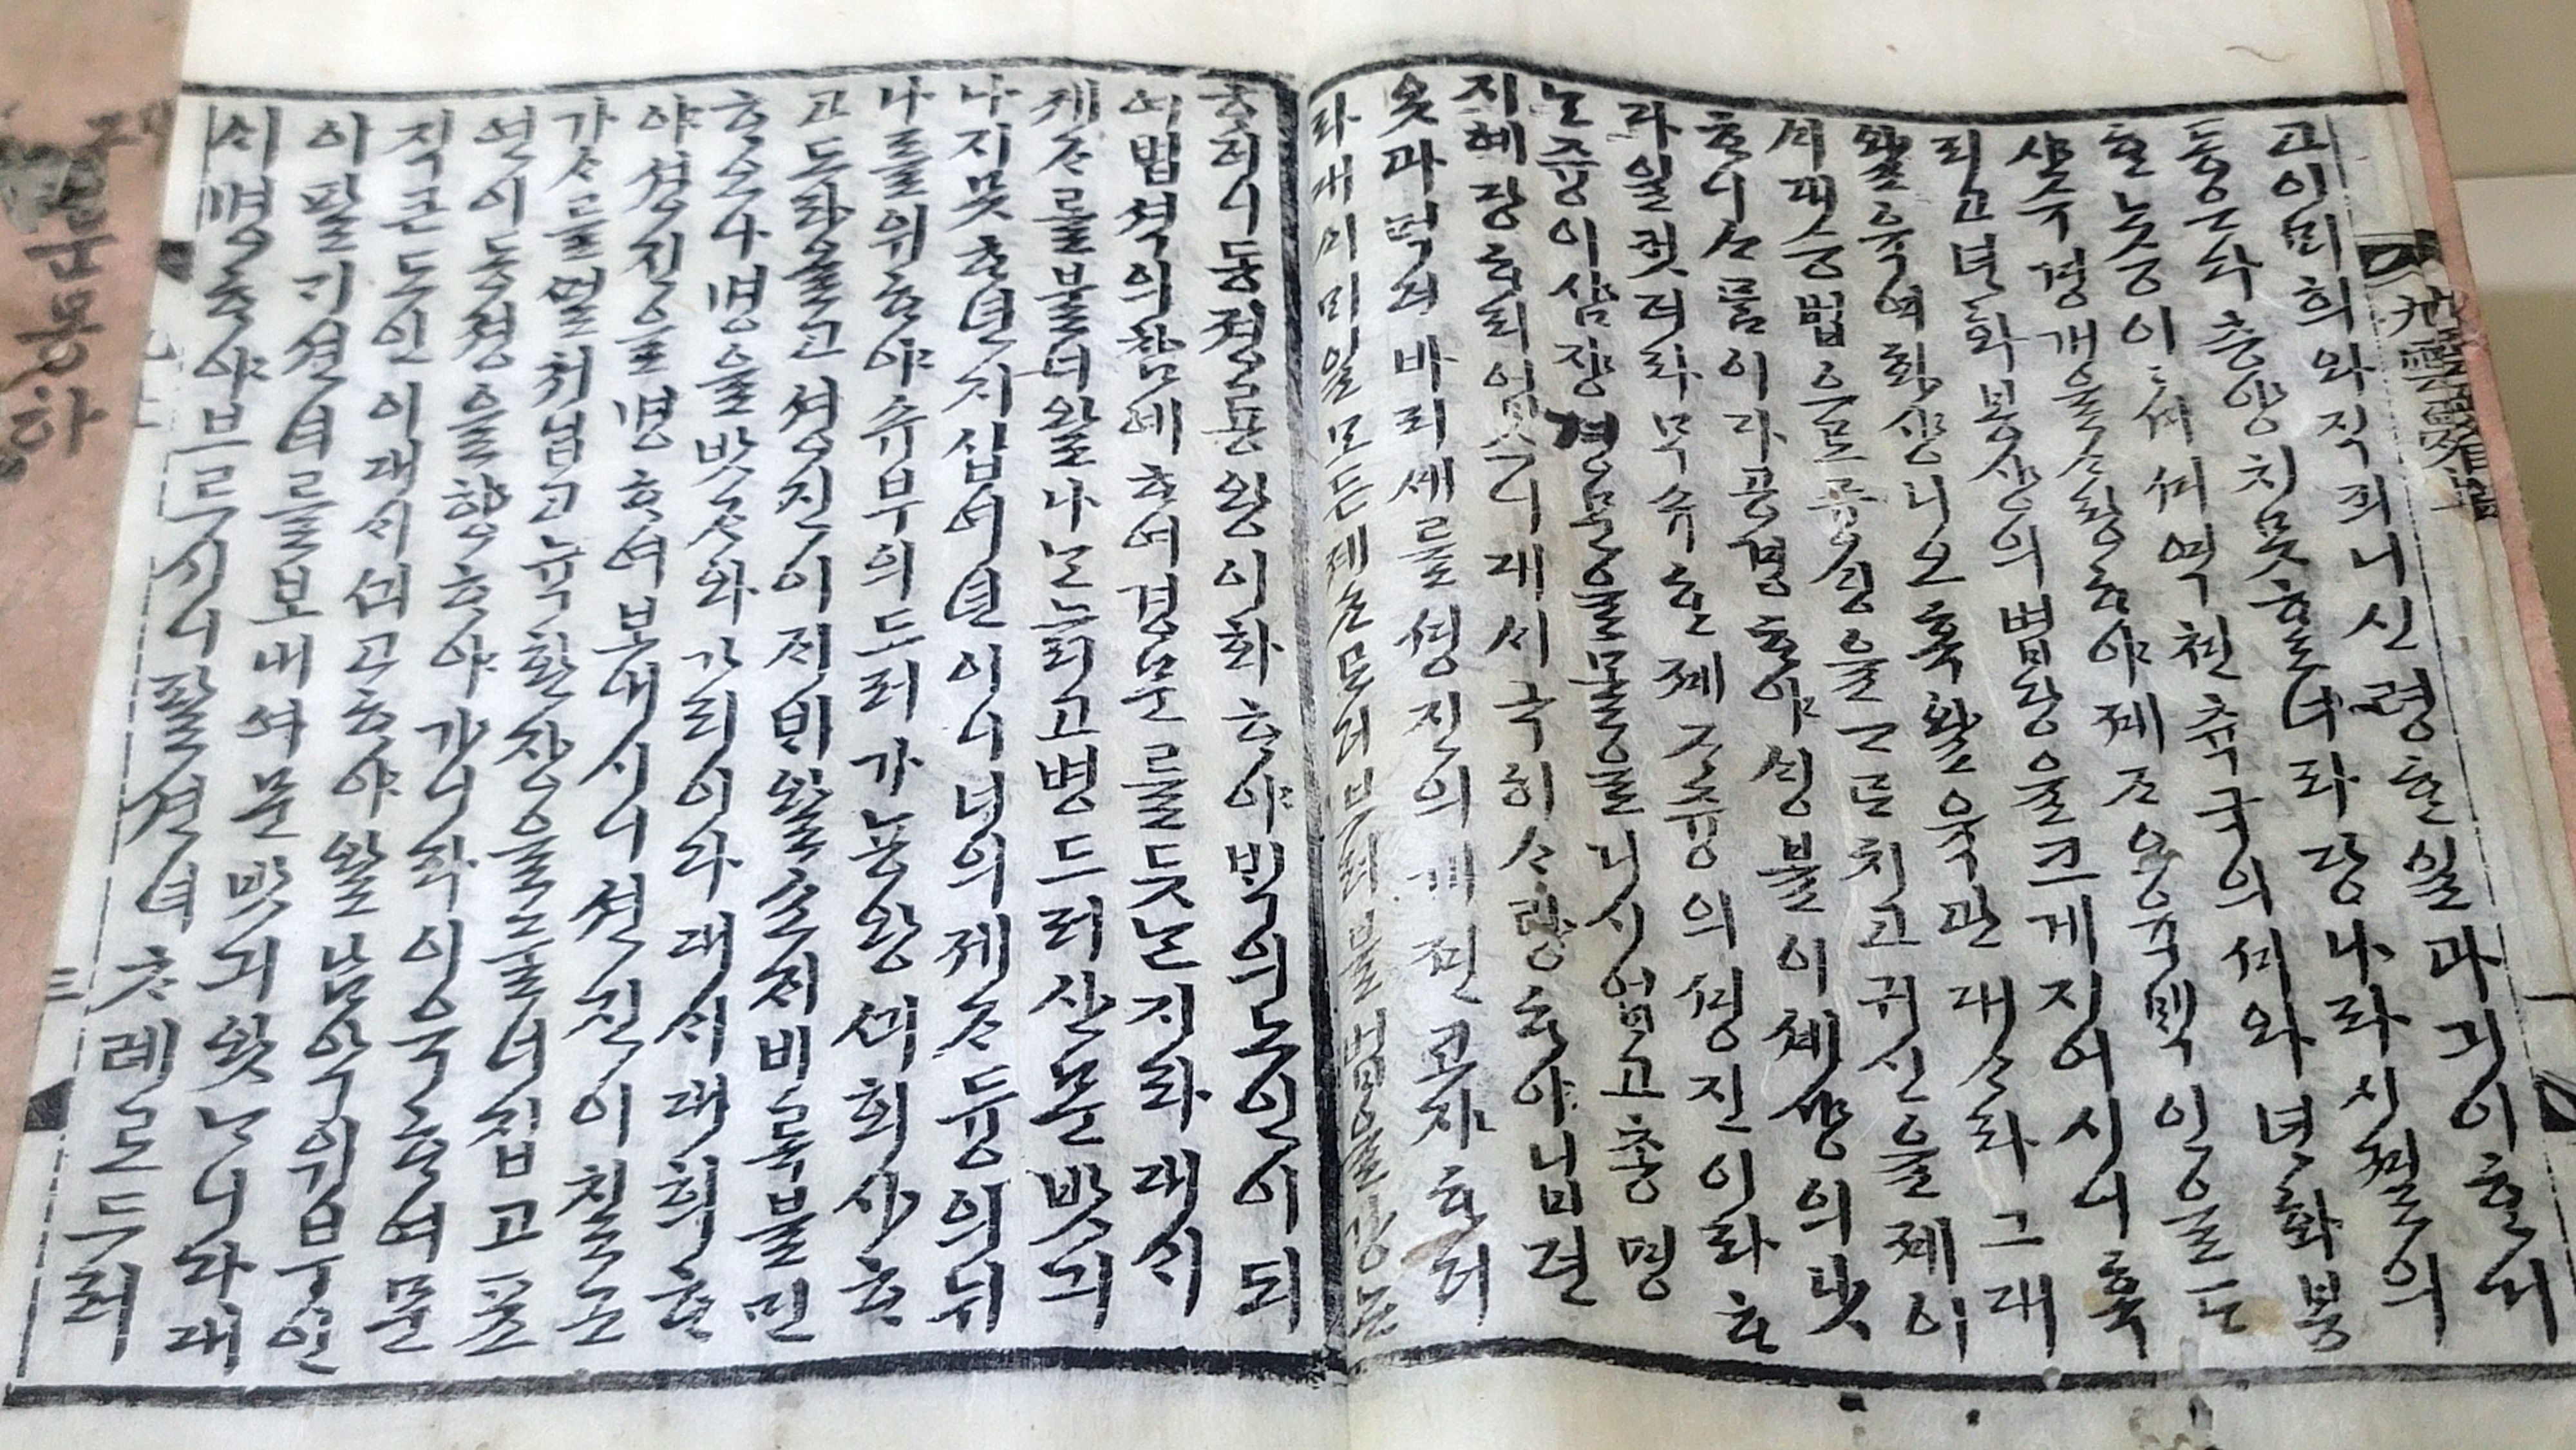 고이비희와직죄니신령ᄒᆞᆫ일과긔이ᄒᆞᆫ거
동은다층양치못ᄒᆞᆯ너라당나라시졀의
ᄒᆞᆫ노승이이셔셔역쳔츅국의셔와년화봉
샹슈경개울ᄉᆞ랑ᄒᆞ야제ᄌᆞ오뉵ᄇᆡᆨ인을ᄃᆞ
리고년화봉샹의법당을크게지어시니혹
왈육여화샹니오혹왈육관대ᄉᆞ라그대
ᄉᆡ대승법으로듕ᄉᆡᆼ을ᄀᆞᄅᆞ치고귀신을제어
ᄒᆞ니ᄉᆞᄅᆞᆷ이다공경ᄒᆞ야ᄉᆡᆼ불이셰샹의낫
라일컷더라무슈ᄒᆞᆫ제ᄌᆞ즁의셩진이라ᄒᆞ
ᄂᆞᆫ즁이삼쟝경문을모를거시업고총명
지혜당ᄒᆞ리업스니대ᄉᆡ극히ᄉᆞ랑ᄒᆞ야닙던
옷과먹던바리ᄅᆞᆯ셩진의게젼코쟈ᄒᆞ더
라대ᄉᆡᄆᆡ일모든제ᄌᆞ불법을강논
ᄒᆞ더니동졍뇽왕이화ᄒᆞ야ᄇᆡᆨ의노인이되
여법셕의참예ᄒᆞ여경문를듯ᄂᆞᆫ지라대ᄉᆡ
제ᄌᆞ를불너왈나ᄂᆞᆫ늘긔고병드러산문밧긔
나지못ᄒᆞᆫ년지십여년이니너의제ᄌᆞ듕의뉘
나를위ᄒᆞ야슈부의드러가뇽왕ᄭᅴ회샤ᄒᆞ
고도라올고셩진이ᄌᆡᄇᆡ왈소ᄌᆡ비록불민
ᄒᆞ오나명을밧ᄌᆞ와가리이라대ᄉᆡ대희ᄒᆞ
야셩진을명ᄒᆞ여보내시니셩진이칠근
가ᄉᆞ를ᄯᅥᆯ쳐닙고뉵환쟝을둘너집고표
연이동졍을향ᄒᆞ야가니라이윽ᄒᆞ여문
직ᄒᆞᆫ도인이대ᄉᆡᄭᅴ고ᄒᆞ야왈남악위부인
이팔기션녀를보내여문밧긔왓ᄂᆞ니라대
ᄉᆡ명ᄒᆞ야브르시니팔션녀ᄎᆞ례로드러